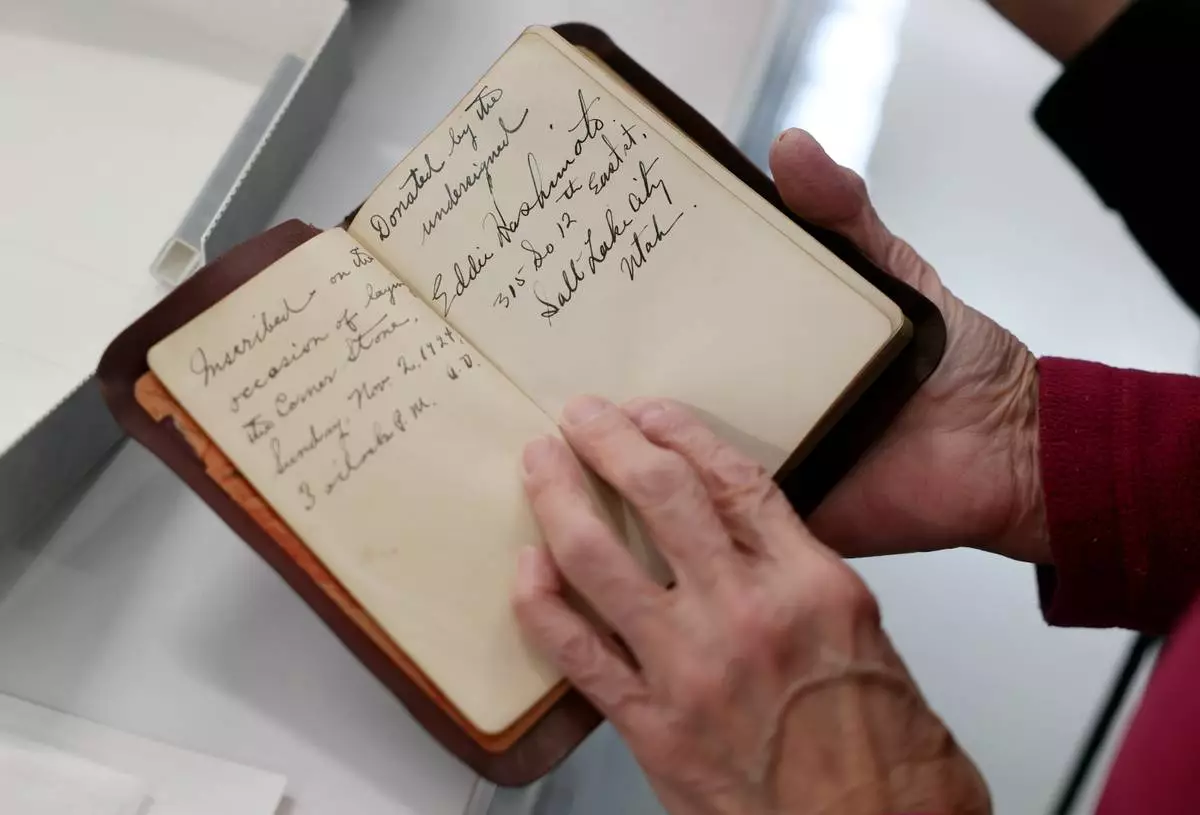 Inscribed on the
occasion of laying
the Corner Stone,
Sunday, Nov. 2, 1924,
A.D.
3 o'clock P.M.
Donated by the
undersigned.
Eddie Hashimoto.
315 So 12th East st.
Salt Lake City
Utah.